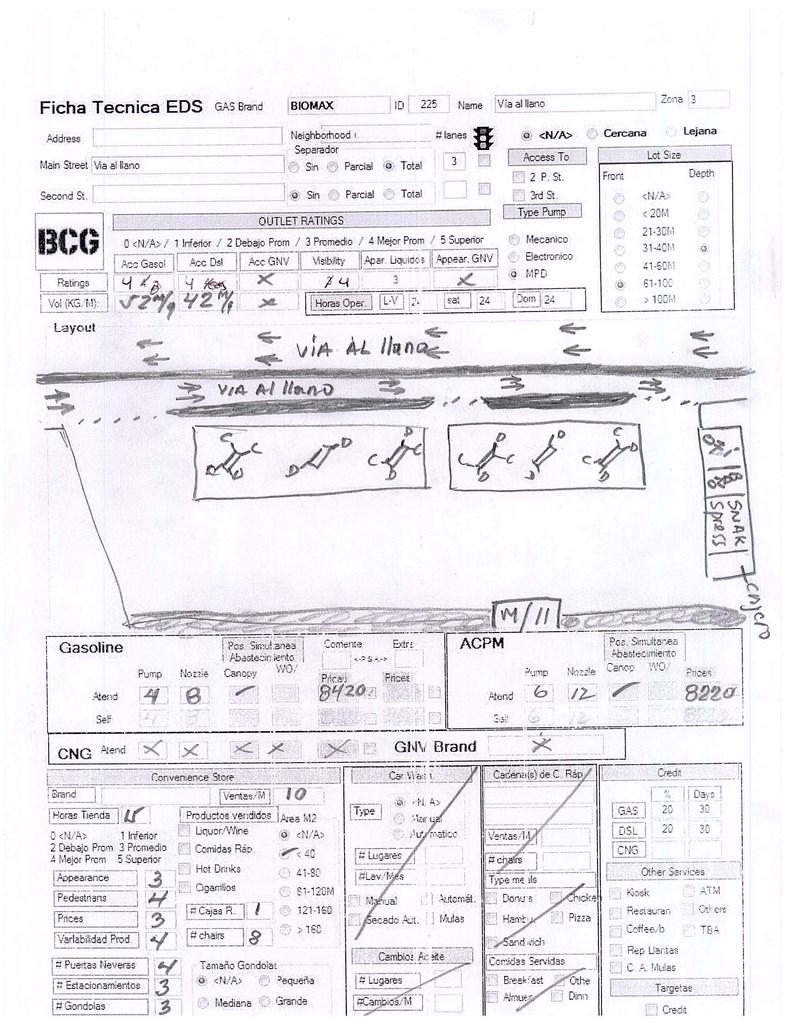 Ficha Tecnica EDS GAS Brand BIOMAX ID 225 Name Via al llano Zona 3
Address Neighborhood # lanes <N/A> Cercana Lejana
Separador
Main Street Via al llano Sin Parcial Total 3 Access To Lot Size
2 P. St. Front Depth
Second St. Sin Parcial Total 3rd St. <N/A>
Type Pump < 20M
BCG OUTLET RATINGS 21-30M
0 <N/A> / 1 Inferior / 2 Debajo Prom / 3 Promedio / 4 Mejor Prom / 5 Superior Mecanico 31-40M
Acc Gasol Acc Dsl Acc GNV Visibility Apar. Liquidos Appear. GNV Electronico 41-60M
Ratings 4 4 X 4 3 X MPD 61-100
Vol (KG/M) 52M/g 42M/g X Horas Oper. L-V 24 sat 24 Dom 24 > 100M
Layout
VIA AL llano
VIA Al llano
C C D D C D D C D C D C D C D
SNAK Spress
Cajero
M/11
Gasoline Pos. Simultanea Abastecimiento Corriente Extra ACPM Pos. Simultanea Abastecimiento
Pump Nozzle Canopy WO/ Prices Prices Pump Nozzle Canop WO/ Prices
Atend 4 8 8420 Atend 6 12 8220
Self 4 8 Self 6 12 8220
CNG Atend X X X X X GNV Brand X
Convenience Store Car Wash Cadena(s) de C. Ráp. Credit
Brand Ventas/M 10 Type <N/A> % Days
Horas Tienda 15 Productos vendidos Area M2 Manual GAS 20 30
0 <N/A> 1 Inferior Liquor/Wine <N/A> Automatico Ventas/M DSL 20 30
2 Debajo Prom 3 Promedio Comidas Ráp. < 40 # Lugares # chairs CNG
4 Mejor Prom 5 Superior Hot Drinks 41-80 #Lav/Mes Type meals Other Services
Appearance 3 Cigarrillos 81-120M Manual Automát. Donuts Chicken Kiosk ATM
Pedestrians 4 # Cajas R. 1 121-160 Secado Aut. Mulas Hamb Pizza Restauran Others
Prices 3 # chairs 8 > 160 Sandwich Coffee/b TBA
Variabilidad Prod. 4 Cambios Aceite Comidas Servidas Rep Llantas
# Puertas Neveras 4 Tamaño Gondolas # Lugares Breakfast Othe C. A. Mulas
# Estacionamientos 3 <N/A> Pequeña #Cambios/M Almue Dinn Targetas
# Gondolas 3 Mediana Grande Credit